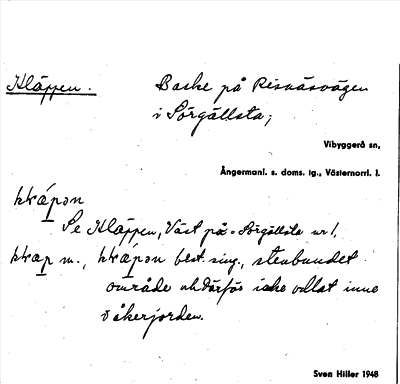 Kläppen.
Backe på Risnäsvägen
i Sörgällsta;
Vibyggerå sn,
Ångermanl. s. doms. tg., Västernorrl. l.
Se Kläppen, Väst på Sörgällsta nr 1.
best. sing., stenbundet
område och därför icke odlat inne
i åkerjorden.
Sven Hiller 1948